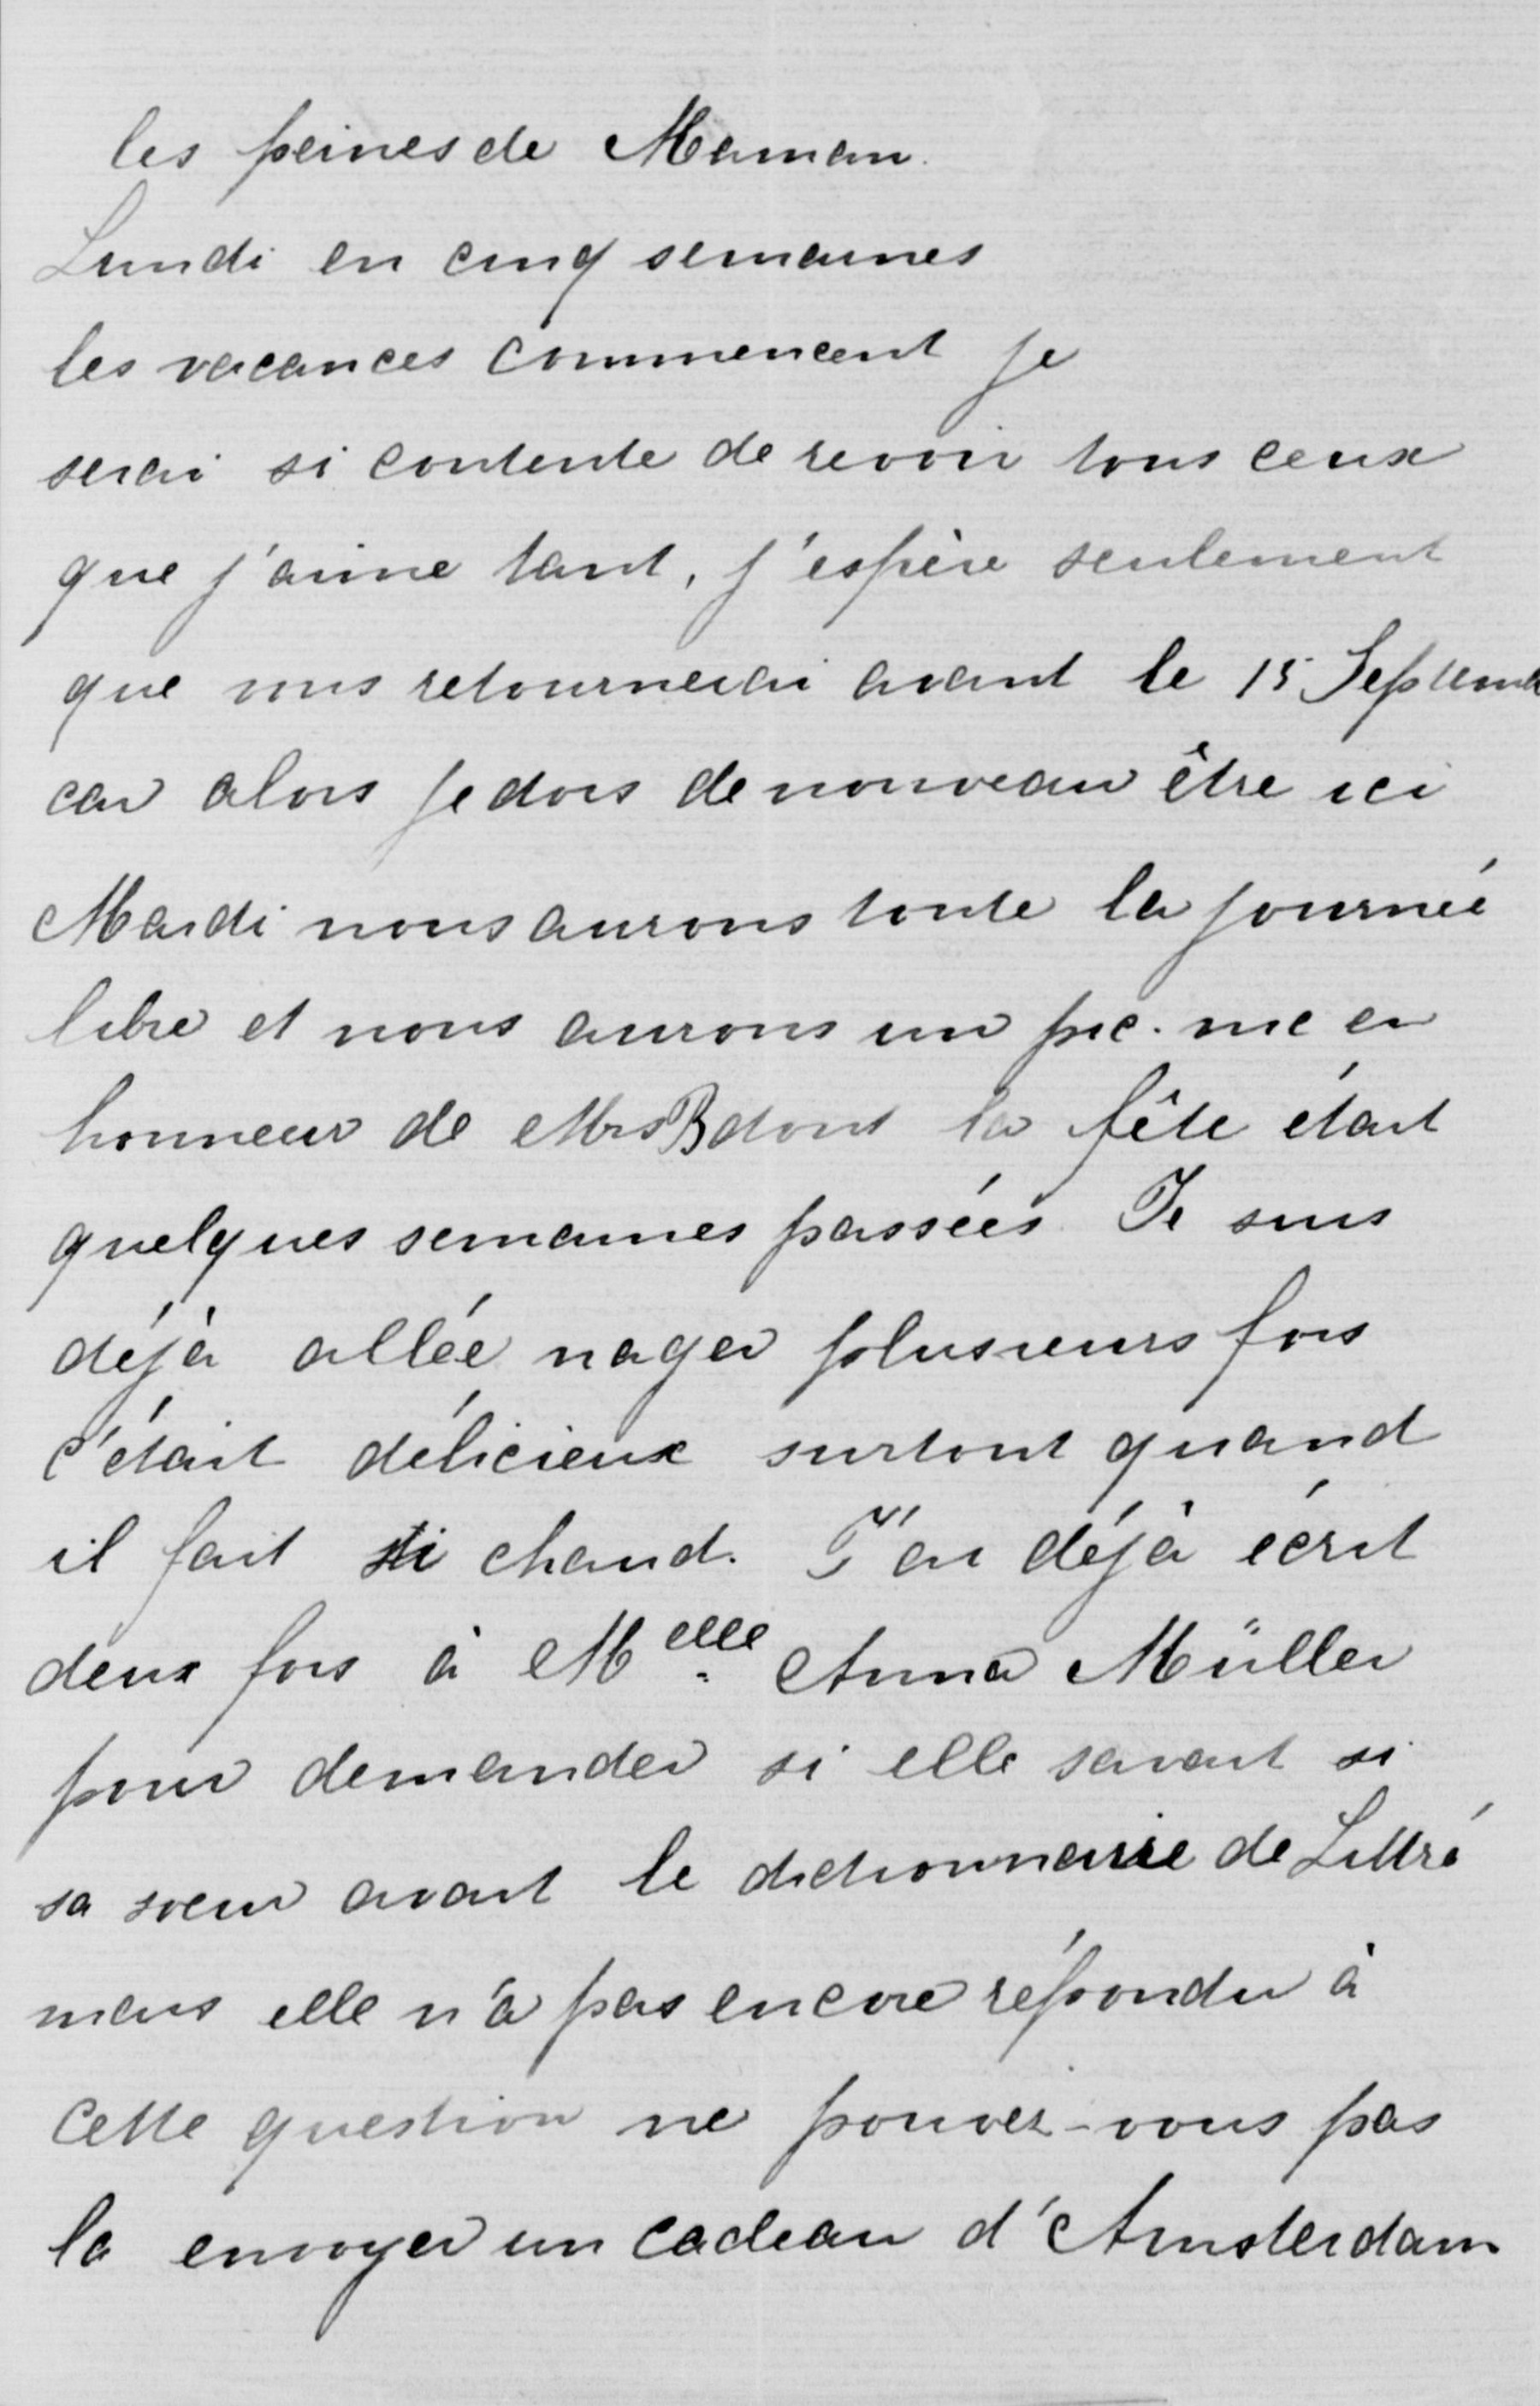 les peines de Maman.
Lundi en cinq semaines
les vacances commencent je
serai si contente de revoir tous ceux
que j'aime tant, j'espère seulement
que vous retournerai avant le 15 Septemb
car alors je dois de nouveau être ici
Mardi nous aurons toute la journée
libre et nous aurons un pic-nic en
honneur de Mrs B dont la fête était
quelques semaines passées. Je suis
déjà allée nager plusieurs fois
c'était délicieux surtout quand
il fait si chaud. J'ai déjà écrit
deux fois à Melle Anna Müller
pour demander si elle savait si
sa soeur avait le dictionnaire de Littré
mais elle n'a pas encore répondu à
cette question ne pouvez-vous pas
la envoyer un cadeau d'Amsterdam